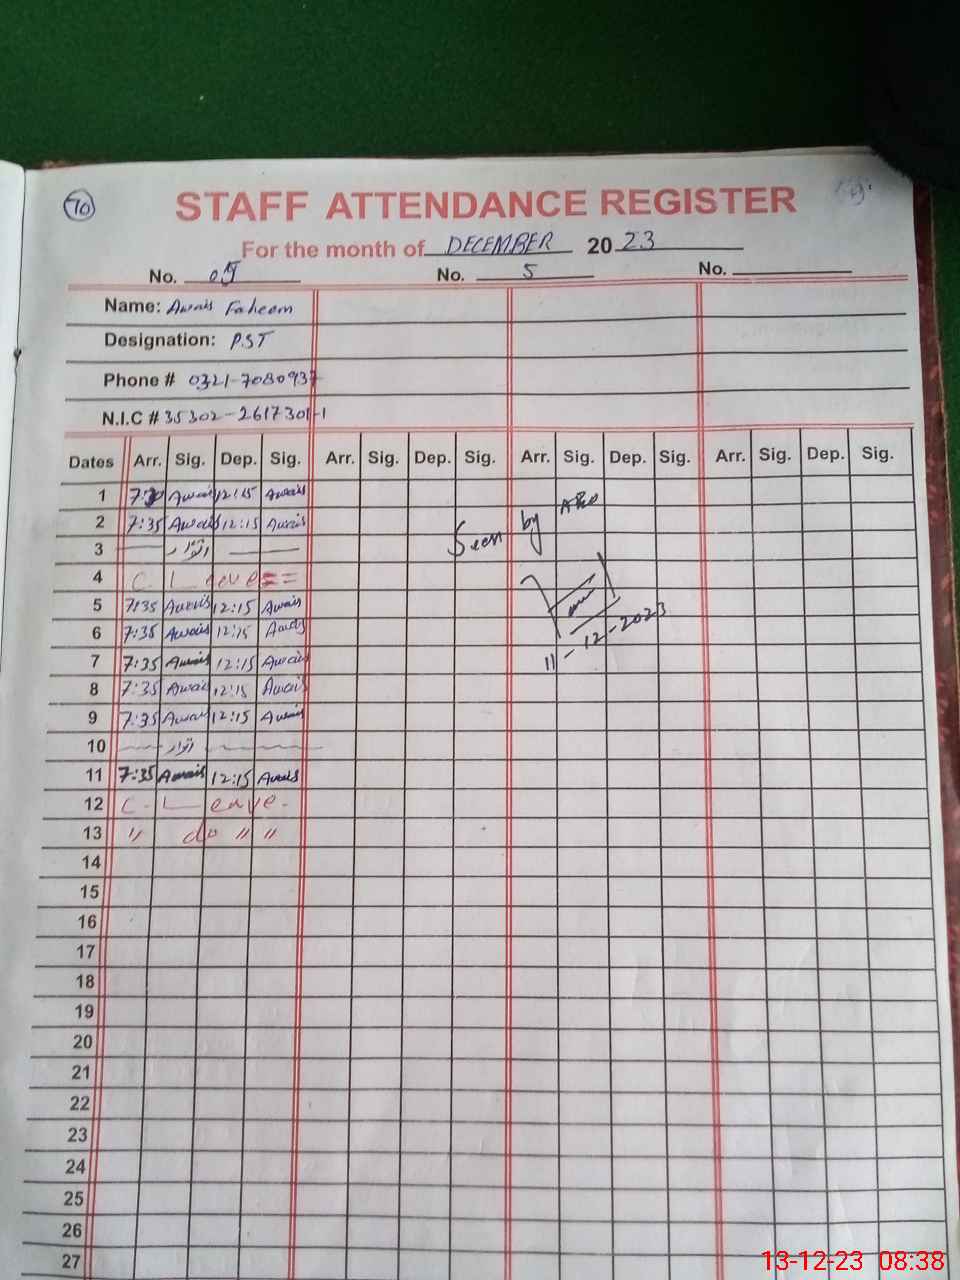 70
STAFF ATTENDANCE REGISTER
For the month of DECEMBER 20 23
No. 05 No. 5 No.
Name: Awais Faheem
Designation: P.ST
Phone # 0321-7080937
N.I.C # 35302-2617301-1
Dates Arr. Sig. Dep. Sig. Arr. Sig. Dep. Sig. Arr. Sig. Dep. Sig. Arr. Sig. Dep. Sig.
1 7:30 Awais 12:15 Awais
2 7:35 Awais 12:15 Awais
3 اتوار
4 C. Leave
5 7:35 Awais 12:15 Awais
6 7:35 Awais 12:15 Awais
7 7:35 Awais 12:15 Awais
8 7:35 Awais 12:15 Awais
9 7:35 Awais 12:15 Awais
10 اتوار
11 7:35 Awais 12:15 Awais
12 C. Leave.
13 " do " "
14
15
16
17
18
19
20
21
22
23
24
25
26
27
Seen by
11-12-2023
13-12-23 08:38